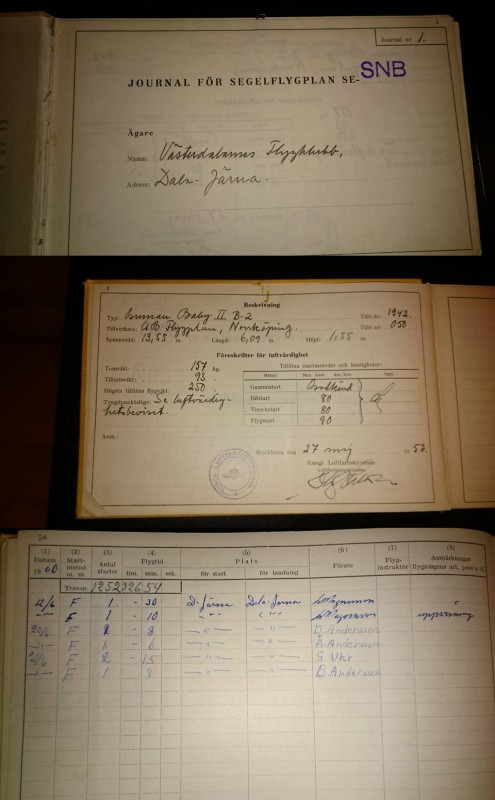 1
Journal nr 1.
JOURNAL FÖR SEGELFLYGPLAN SE-SNB
Ägare
Namn: Västerdalarnes Flygklubb,
Adress: Dala-Järna.
2
Beskrivning
Typ: Grunau Baby II B-2 Tillv.år: 1942
Tillverkare: AB Flygplan, Norrköping. Tillv.nr: 050
Spännvidd: 13,55 m. Längd: 6,09 m. Höjd: 1,55 m.
Föreskrifter för luftvärdighet
Tomvikt: 157 kg.
Tillsatsvikt: 93
Högsta tillåtna flygvikt: 250
Tyngdpunktsläge: Se luftvärdig-
hetsbeviset.
Tillåtna startmetoder och hastigheter:
Gummistart
Bilstart 80
Vinschstart 80
Flygstart 90
Anm.:
Stockholm den 27 maj 1953.
Kungl. Luftfartsstyrelsen
58
(1) (2) (3) (4) (5) (6) (7) (8)
Datum Start- Antal Flygtid Plats Förare Flyg- Anmärkningar
1960 metod starter tim. min. sek. för start för landning instruktör (flygningens art, pass e. d.
Transp. 1252 326 54
12/6 F 1 - 30 D-Järna Dala-Järna
-"- F 1 - 10 -"- -"-
F 2 - 8 -"- -"- Andersson
-"- F 1 - 6 -"- -"- Andersson
F 2 - 15 -"- -"- S Uhr
-"- F 1 8 -"- -"- B Andersson